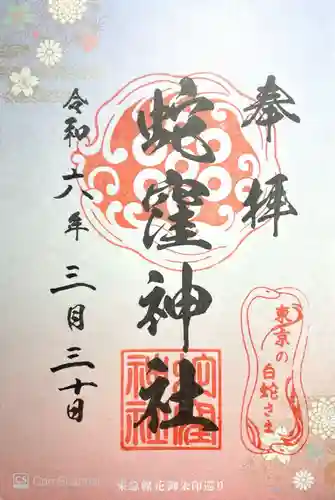 奉拝
蛇窪神社
令和六年三月三十日
東京の
白蛇さま
蛇窪
神社
CS CamScanner